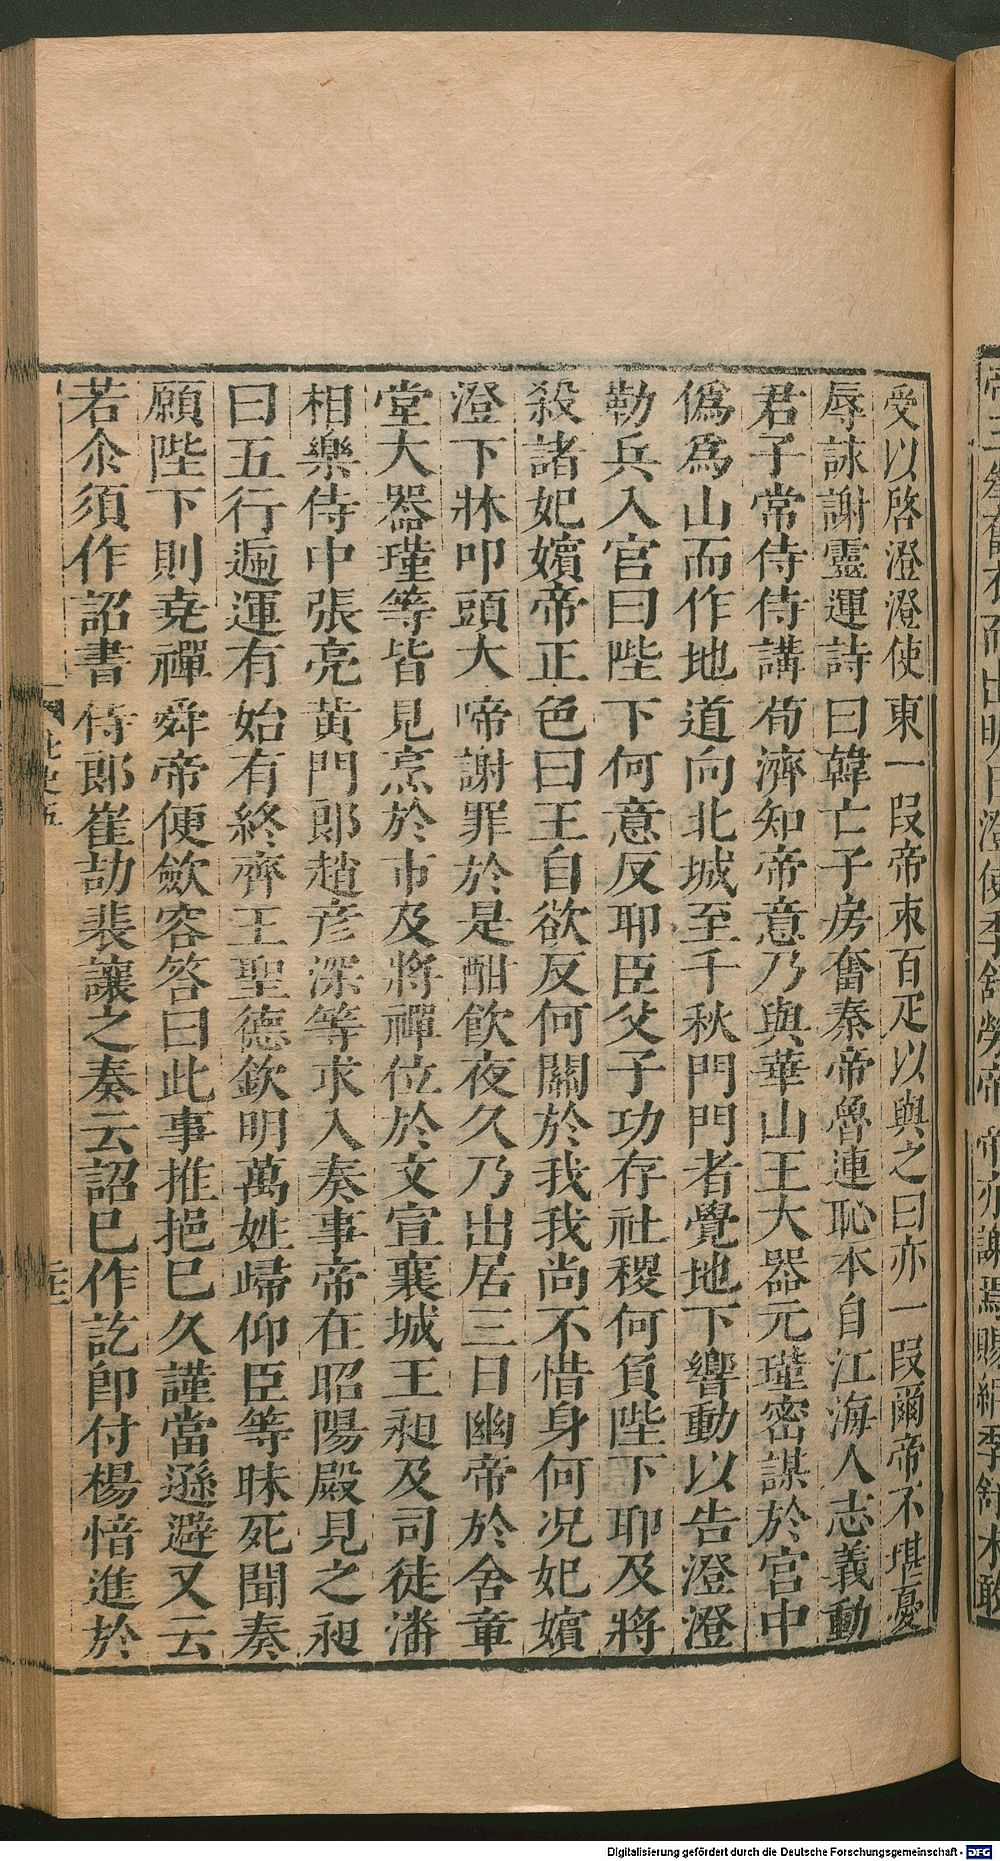 受以啓澄澄使東一段帝束百疋以與之曰亦一段爾帝不堪憂
辱詠謝靈運詩曰韓亡子房奮秦帝魯連恥本自江海人志義動
君子常侍侍講荀濟知帝意乃與華山王大器元瑾密謀於宫中
僞爲山而作地道向北城至千秋門門者覺地下響動以告澄澄
勒兵入宫曰陛下何意反耶臣父子功存社稷何負陛下耶及將
殺諸妃嬪帝正色曰王自欲反何關於我我尚不惜身何况妃嬪
澄下牀叩頭大啼謝罪於是酣飲夜久乃出居三日幽帝於含章
堂大器瑾等皆見烹於市及將禪位於文宣襄城王昶及司徒潘
相樂侍中張亮黄門郎趙彦深等求入奏事帝在昭陽殿見之昶
曰五行遞運有始有終齊王聖德欽明萬姓歸仰臣等昧死聞奏
願陛下則堯禪舜帝便歛容答曰此事推挹已久謹當遜避又云
若尒須作詔書侍郎崔劼裴讓之奏云詔已作訖卽付楊愔進於
北史五
Digitalisierung gefördert durch die Deutsche Forschungsgemeinschaft - DFG